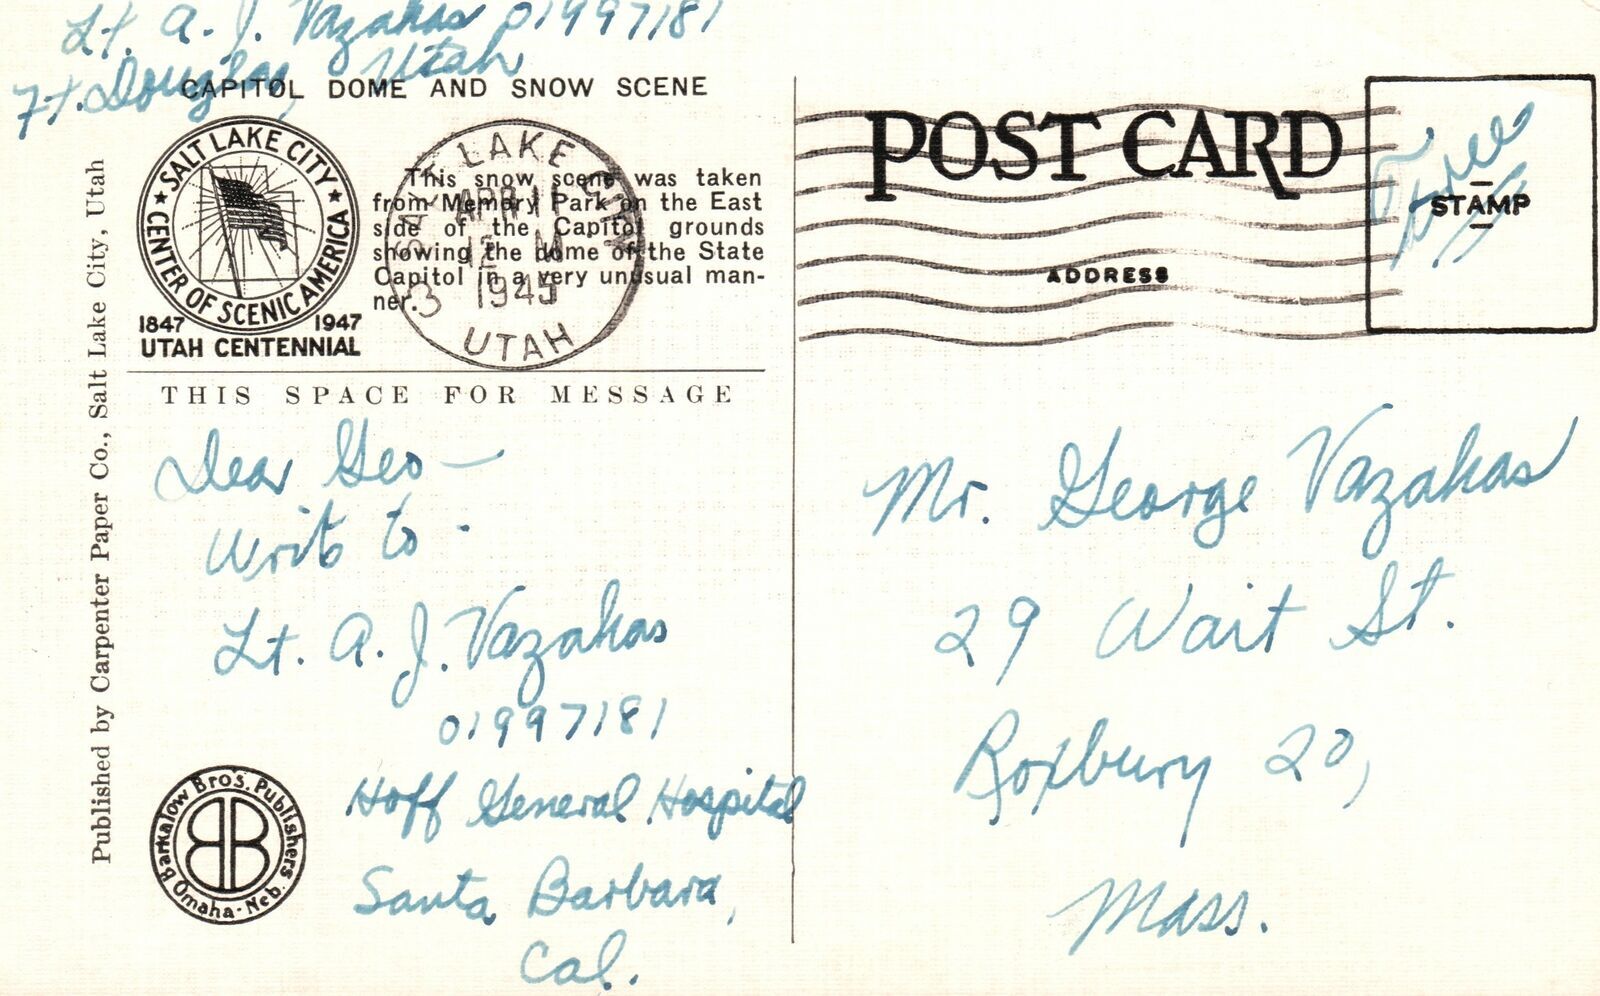 Lt. A. J. Vazakas 01997181
Ft. Douglas, Utah
CAPITOL DOME AND SNOW SCENE
SALT LAKE CITY
CENTER OF SCENIC AMERICA
1847 1947
UTAH CENTENNIAL
SALT LAKE CITY
APR 11
12 M
1945
3
UTAH
This snow scene was taken
from Memory Park on the East
side of the Capitol grounds
showing the dome of the State
Capitol in a very unusual man-
ner.
THIS SPACE FOR MESSAGE
Published by Carpenter Paper Co., Salt Lake City, Utah
Dear Geo —
Write to -
Lt. A. J. Vazakas
01997181
Hoff General Hospital
Santa Barbara,
Cal.
Barkalow Bro's. Publishers
Omaha - Neb.
POST CARD
ADDRESS
Free
STAMP
Mr. George Vazakas
29 Wait St.
Roxbury 20,
Mass.